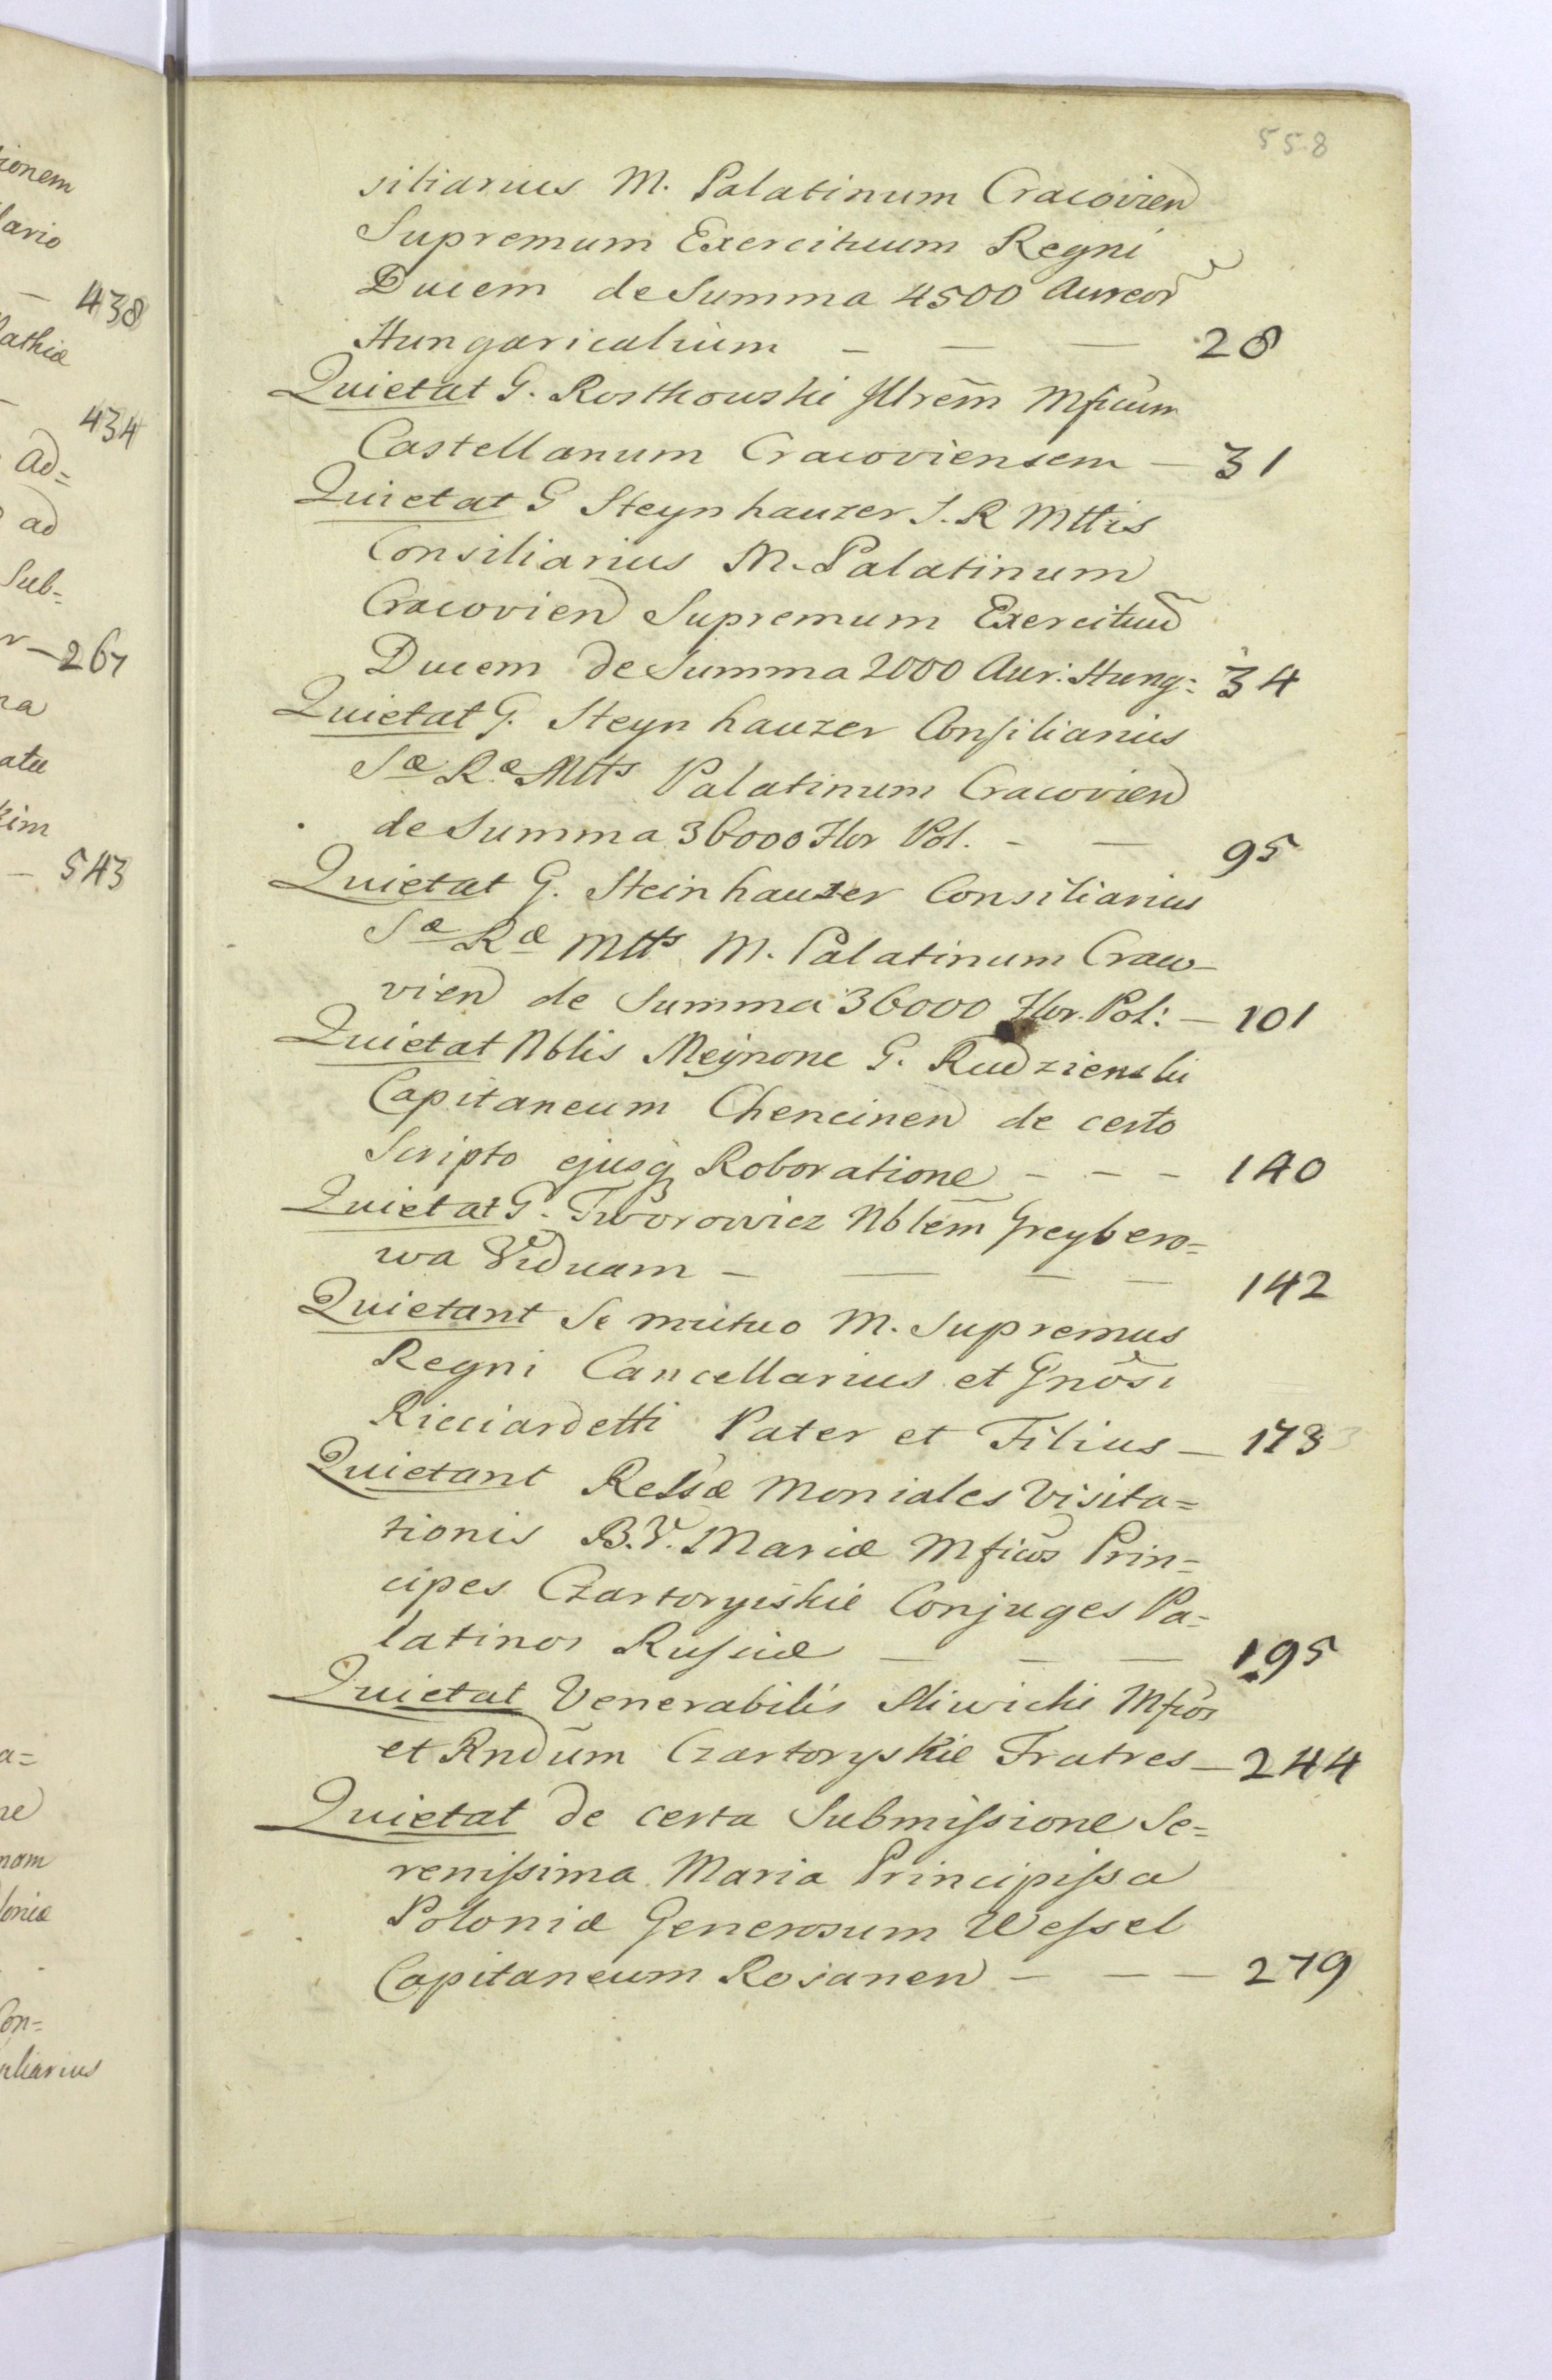 558
siliarius M. Palatinum Cracovien
Supremum Exercituum Regni
Ducem de Summa 4500 Aureor
Hungaricalium — — — 28
Quietat G. Rosthowski Illrem Mficum
Castellanum Cracoviensem — 31
Quietat G Steynhauzer S. R Mttis
Consiliarius M. Palatinum
Cracovien Supremum Exercituu
Ducem de Summa 2000 Aur: Hung: 34
Quietat G. Steynhauzer Consiliarius
Sæ Ræ Mtts Palatinum Cracovien
de Summa 36000 Flor Pol. - — 95
Quietat G. Steinhauzer Consiliarius
Sæ Ræ Mtts M. Palatinum Craco-
vien de Summa 36000 Flor. Pol: — 101
Quietat Nblis Mejnone G. Rudzienski
Capitaneum Chencinen de certo
Scripto ejusq Roboratione - - - 140
Quietat G. Tworowicz Nblem Greybero=
wa Viduam — — — — 142
Quietant Se mutuo M. Supremus
Regni Cancellarius et Gnosi
Ricciardetti Pater et Filius — 173
Quietant Relsæ Moniales Visita=
tionis B. V. Mariæ Mficos Prin=
cipes Czartoryiskie Conjuges Pa=
latinos Russiæ — — — 195
Quietat Venerabilis Sliwicki Mficos
et Rndum Czartoryskie Fratres — 244
Quietat de certa Submissione Se=
renissima Maria Principissa
Poloniæ Generosum Wessel
Capitaneum Rosanen — — — 279
ionem
lario
— 438
athiæ
434
Ad=
ad
Sub=
— 267
na
atu
kim
— 543
a=
ne
nam
loniæ
Con=
iliarius